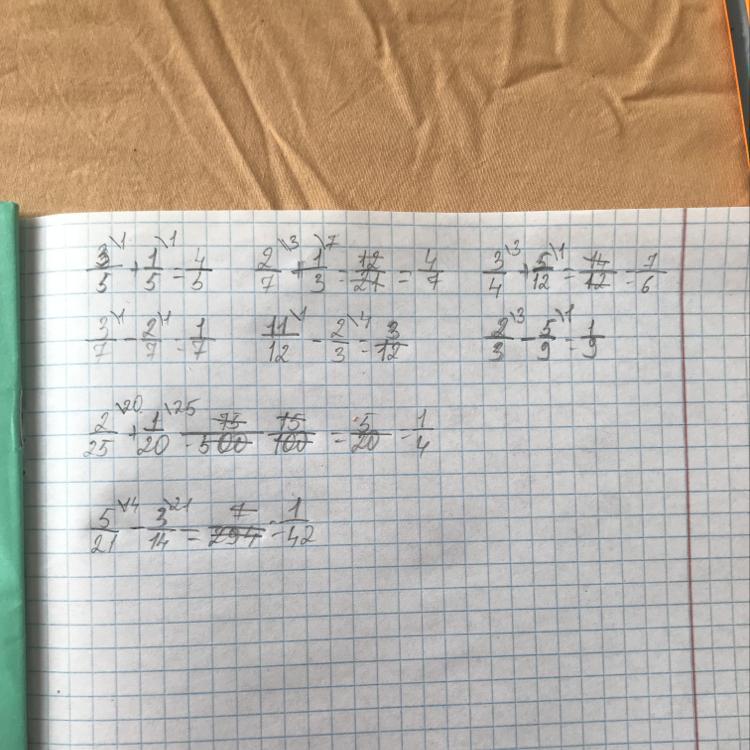 3/5\1 + 1/5\1 = 4/5 2/7\3 + 1/3\7 = 12/21 = 4/7 3/4\3 + 5/12\1 = 14/12 = 7/6
3/7\1 - 2/7\1 = 1/7 11/12\1 - 2/3\4 = 3/12 2/3\3 - 5/9\1 = 1/9
2/25\20 + 1/20\25 = 75/500 = 15/100 = 5/20 = 1/4
5/21\14 - 3/14\21 = 7/294 = 1/42